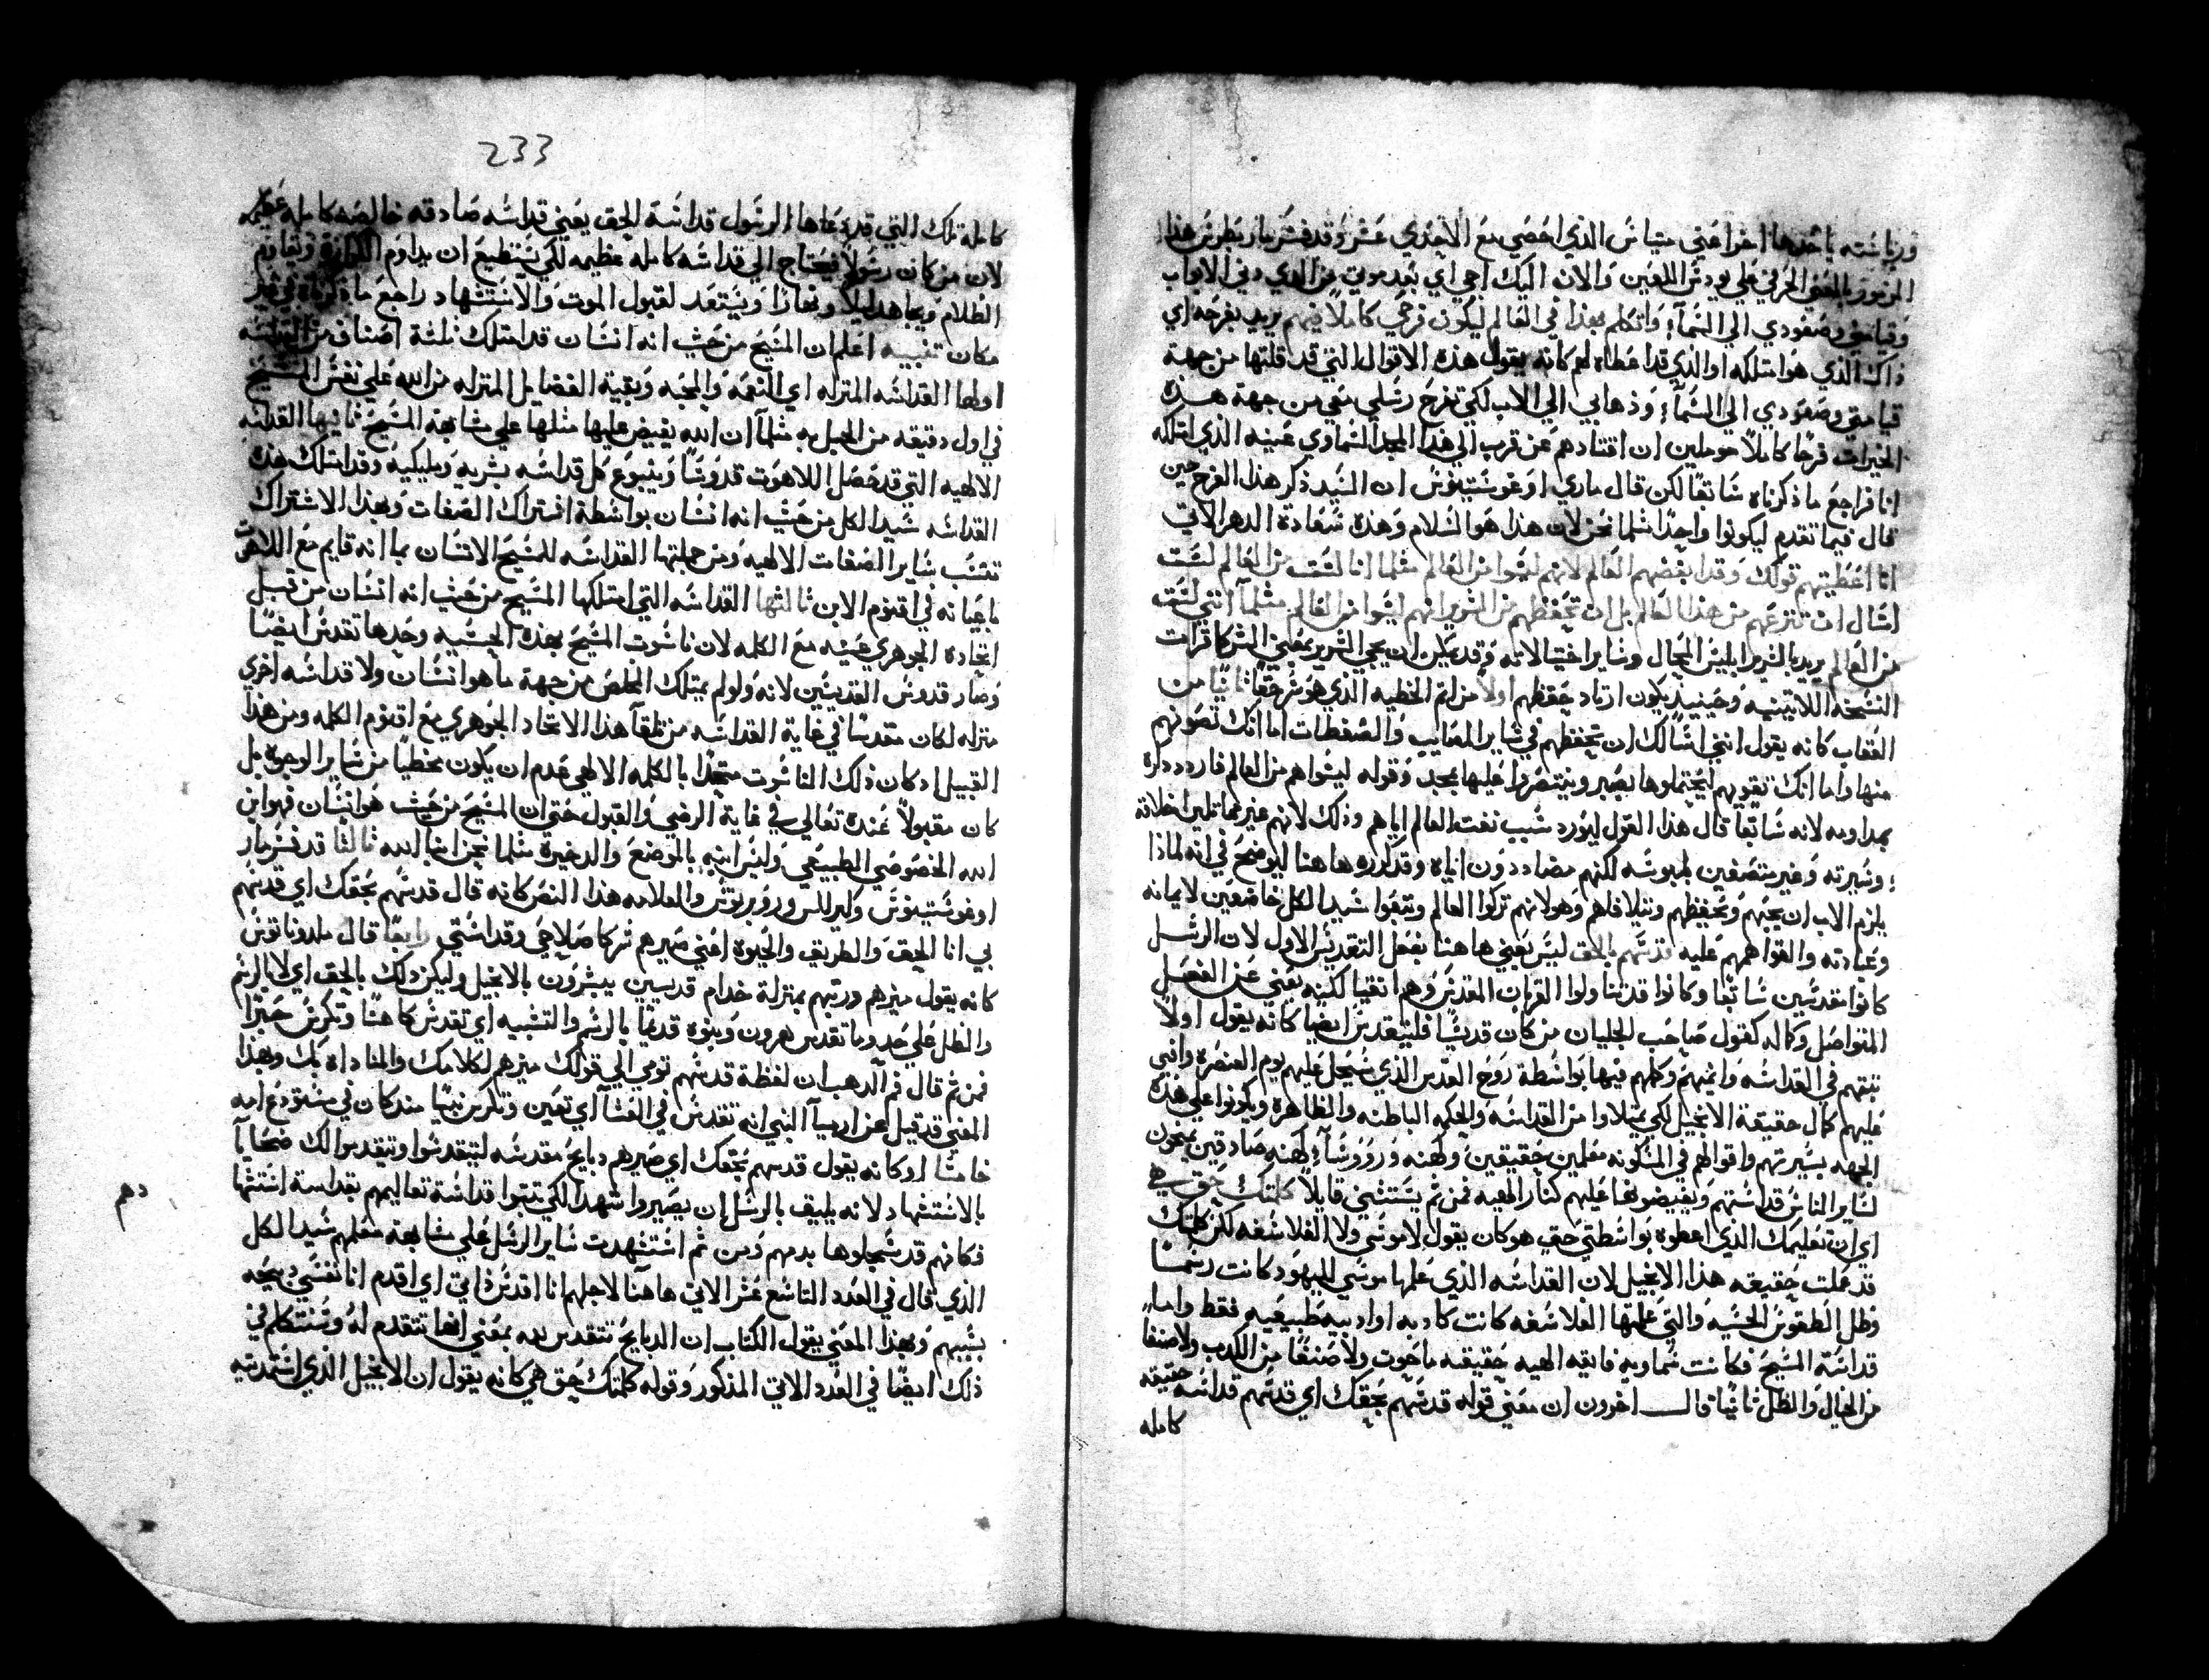 ورياسته ياخذها اخر اعني متياس الذي احصي مع الاحدي عشر وقد فسر مار بطرس هذا
المزمور بالمعني الحرفي علي يودس اللعين والان اليك اجي اي بعد موتي من الاب
وقيامتي وصعودي الي السمآ؛ واتكلم بهذا في العالم ليكون فرحي كاملاً فيهم يريد بفرحه اي
ذاك الذي هو امتلكه او الذي قد اعطاه لهم كانه يقول هذه الاقوال التي قد قلتها من جهة
قيامتي وصعودي الي السمآ؛ وذهابي الي الاب لكي تفرح رسلي معي من جهة هذه
الخيرات فرحًا كاملاً موملين ان اقتادهم عن قرب الي هذا المجد السماوي عينه الذي امتلكه
انا فراجع ما ذكرناه سابقًا لكن قال ماري اوغوستينوس ان السيد ذكر هذا الفرح حين
قال فيما تقدم ليكونوا واحدًا مثلما نحن لان هذا هو السلام وهذه سعادة الدهر الاتي
انا اعطيتهم قولك وقد ابغضهم العالم لانهم ليسوا من العالم مثلما انا لست من العالم لست
اسال ان تنزعهم من هذا العالم بل ان تحفظهم من الشرير انهم ليسوا من العالم مثلمآ انني لست
من العالم يريد بالشرير ابليس المحال وساير احتيالاته وقد يمكن ان يجي الشرير بمعني الشر كما قرات
النسخه اللاتينيه وحينيذ يكون اراد حفظهم اولاً من اثم الخطيه الذي هو شر حقًا ثانيًا من
العقاب كانه يقول انني اسالك ان تحفظهم في ساير المصايب والضغطات اما انك تصونهم
منها واما انك تقويهم ليحتملوها بصبر وينتصروا عليها بمجد وقوله ليسوا هم من العالم
بمداومه لانه سابقًا قال هذا القول ليورد سبب نفت العالم اياهم وذلك لانهم غير مماثلين اخلاقه
؛ وسيرته وغير متصفين بلبوسه لكنهم مضاددون اياه وقد كرره هاهنا ليوضح في انه لماذا
يلزم الاب ان يحبهم ويحفظهم ويتلافاهم وهو لانهم تركوا العالم وتبعوا سيد الكل خاضعين لايمانه
وعبادته والقوا همهم عليه قدسهم بالحق ليس يعني هاهنا بفعل التقديس الاول لان الرسل
كانوا مقدسين سابقًا وكانوا قد تناولوا القربان المقدس وهم اتقيا لكنه يعني عن الفعل
المتواصل وكماله كقول صاحب الجليان من كان قديسًا فليتقدس ايضًا كانه يقول اولاً
ثبتهم في القداسه وانميهم وكلهم فيها بواسطة روح القدس الذي سيحل عليهم يوم العنصره وافيض
عليهم كمال حقيقة الانجيل لكي يمتلاوا من القداسه والحكمه الباطنه والظاهره ويكونوا علي هذه
الجهه بسيرتهم واقوالهم في المسكونه معلمين حقيقين وكهنه وروسآ كهنه صادقين يمنحون
لساير الناس قداستهم ويفيضونها عليهم كنار الهيه فمن ثم يستثني قايلاً كلمتك حق هي
اي ان تعليمك الذي اعطوه بواسطتي حق هو كان يقول لا موسي ولا الفلاسفه لكن كلمتك
قد عملت حقيقه هذا الانجيل لان القداسه الذي علمها موسي لليهود كانت رسمًا
وظل الطقوس الحسيه والتي علمتها الفلاسفه كانت كاذبه او ادبيه طبيعيه فقط واما
قداسة المسيح فكانت سماويه فايقه الهيه حقيقيه ما حوت ولا صنفًا من الكدب ولا صنفًا
من الخيال والظل ثانيًا قال اخرون ان معني قوله قدسهم بحقك اي قدسهم قداسه حقيقه
كامله
233
كامله تلك التي قد دعاها الرسول قداسة الحق يعني قداسه صادقه خالصه كامله عظيمه
لان من كان رسولاً فيحتاج الي قداسه كامله عظيمه لكي يستطيع ان يداوم الكرازه ويقاوم
الظلام ويجاهد ليلاً ونهارًا ويستعد لقبول الموت والاستشهاد راجع ما ذكرناه في غير
مكان تنبيه اعلم ان المسيح من حيث انه انسان قد امتلك ثلثة اصناف من القداسه
اولها القداسه المنزله اي النعمه والمحبه وبقية الفضايل المنزله من الله علي نفس المسيح
في اول دقيقه من الحبل به مثلمآ ان الله يفيض عليها مثلها علي مشابهة المسيح ثانيها القداسه
الالهيه التي قد حصل اللاهوت قدوسًا وينبوع كل قداسه بشريه ومليكيه وقد امتلك هذه
القداسه سيد الكل من حيث انه انسان بواسطة اشتراك الصفات وبهذا الاشتراك
تنسب ساير الصفات الالهيه ومن جملتها القداسه للمسيح الانسان بما انه قايم مع اللاهوت
باعيانه في اقنوم الابن ثالثها القداسه التي امتلكها المسيح من حيث انه انسان من قبل
اتحاده الجوهري عينه مع الكلمه لان ناسوت المسيح بهذه الحيثيه وحدها تقدس ايضًا
وصار قدوس القديسين لانه ولو لم يمتلك المخلص من جهة ما هو انسان ولا قداسه اخري
منزله لكان مقدسًا في غاية القداسه من تلقآ هذا الاتحاد الجوهري مع اقنوم الكلمه ومن هذا
القبيل اد كان ذلك الناسوت متحدًا بالكلمه الالهي عدم ان يكون مخطيًا من ساير الوجوه بل
كان مقبولاً عنده تعالي في غاية الرضي والقبول حتي ان المسيح من حيث هو انسان فهو ابن
الله الخصوصي الطبيعي وليس ابنه بالوضع والدخيرة مثلما نحن ابنا الله ثالثًا قد فسر مار
اوغوستينوس وكيرللس وروبرتوس والعلامه هذا النص كانه قال قدسهم بحقك اي قدسهم
بي انا الحق والطريق والحيوه اعني صيرهم شركا صلاحي وقداستي رابعًا قال ملدوناتوس
كانه يقول ميزهم ورتبهم بمنزلة خدام قديسين يبشرون بالانجيل وليكن ذلك بالحق اي لا بالرسم
والظل علي حد وما تقدس هرون وبنوه قديمًا بالرسم والتشبيه اي تقدس كاهنًا وتكرس حبرًا
فمن ثم قال فم الدهب ان لفظة قدسهم تومي الي قولك ميزهم لكلامك والمناداه بك وبهذا
المعني قد قيل عن ارميآ النبي انه تقدس في الحشآ اي تعين وتكرس نبيًا مند كان في مستودع امه
خامسًا او كانه يقول قدسهم بحقك اي صيرهم دبايح مقدسه لتتقدسوا وتتقدموا لك ضحايآ
بالاستشهاد لانه يليق بالرسل ان يصيروا شهدا لكي تثبتوا قداسة تعاليمهم بقداسة استشهادهم
فكانهم قد سجلوها بدمهم ومن ثم استشهدت ساير الرسل علي مشابهة معلمهم سيد الكل
الذي قال في العدد التاسع عشر الاتي هاهنا لاجلهم انا اقدس ذاتي اي اقدم انا نفسي دبيحه
بسببهم وبهذا المعني يقول الكتاب ان الدبايح تتقدس لله بمعني انها تتقدم له وسنتكلم في
ذلك ايضًا في العدد الاتي المذكور وقوله كلمتك حق هي كانه يقول ان الانجيل الذي استمديته